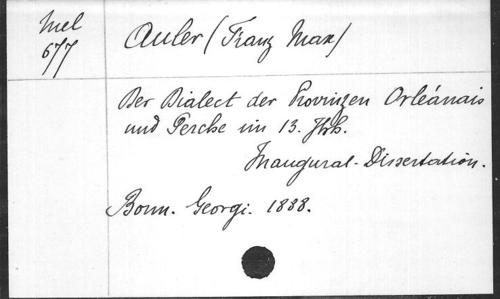 Mel
677
Auler (Franz Max)
Der Dialect der Provinzen Orléanais
und Perche im 13. Jhh.
Inaugural-Dissertation.
Bonn. Georgi. 1888.